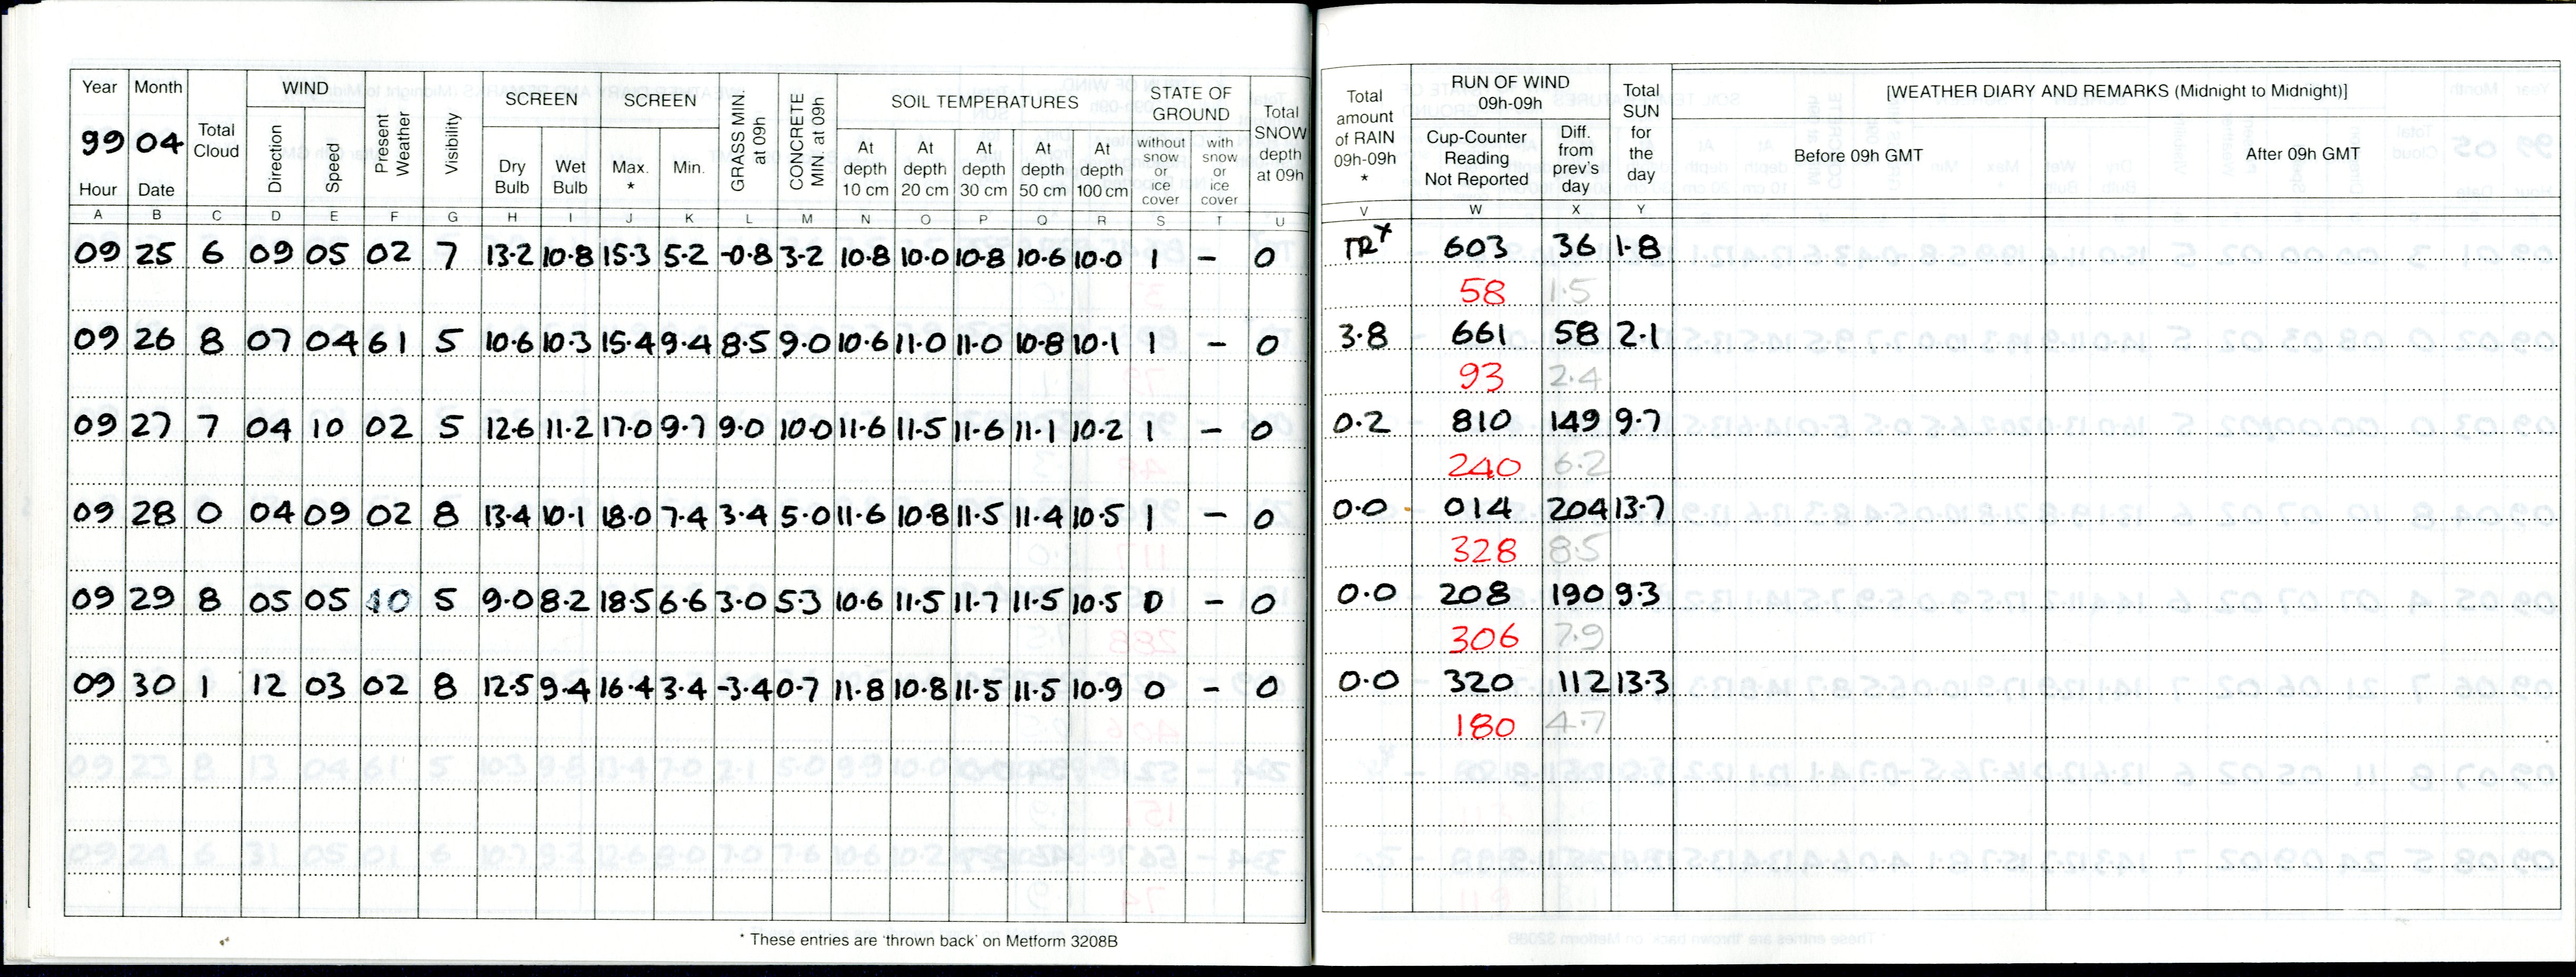 Year Month Total Cloud WIND Present Weather Visibility SCREEN SCREEN GRASS MIN. at 09h CONCRETE MIN. at 09h SOIL TEMPERATURES STATE OF GROUND Total SNOW depth at 09h Total amount of RAIN 09h-09h * RUN OF WIND 09h-09h Total SUN for the day [WEATHER DIARY AND REMARKS (Midnight to Midnight)]
99 04
Hour Date Direction Speed Dry Bulb Wet Bulb Max. * Min. At depth 10 cm At depth 20 cm At depth 30 cm At depth 50 cm At depth 100 cm without snow or ice cover with snow or ice cover Cup-Counter Reading Not Reported Diff. from prev's day Before 09h GMT After 09h GMT
A B C D E F G H I J K L M N O P Q R S T U V W X Y
09 25 6 09 05 02 7 13.2 10.8 15.3 5.2 -0.8 3.2 10.8 10.0 10.8 10.6 10.0 1 - 0 TR x 603 36 1.8
58 1.5
09 26 8 07 04 61 5 10.6 10.3 15.4 9.4 8.5 9.0 10.6 11.0 11.0 10.8 10.1 1 - 0 3.8 661 58 2.1
93 2.4
09 27 7 04 10 02 5 12.6 11.2 17.0 9.7 9.0 10.0 11.6 11.5 11.6 11.1 10.2 1 - 0 0.2 810 149 9.7
240 6.2
09 28 0 04 09 02 8 13.4 10.1 18.0 7.4 3.4 5.0 11.6 10.8 11.5 11.4 10.5 1 - 0 0.0 014 204 13.7
328 8.5
09 29 8 05 05 10 5 9.0 8.2 18.5 6.6 3.0 5.3 10.6 11.5 11.7 11.5 10.5 0 - 0 0.0 208 190 9.3
306 7.9
09 30 1 12 03 02 8 12.5 9.4 16.4 3.4 -3.4 0.7 11.8 10.8 11.5 11.5 10.9 0 - 0 0.0 320 112 13.3
180 4.7
* These entries are 'thrown back' on Metform 3208B